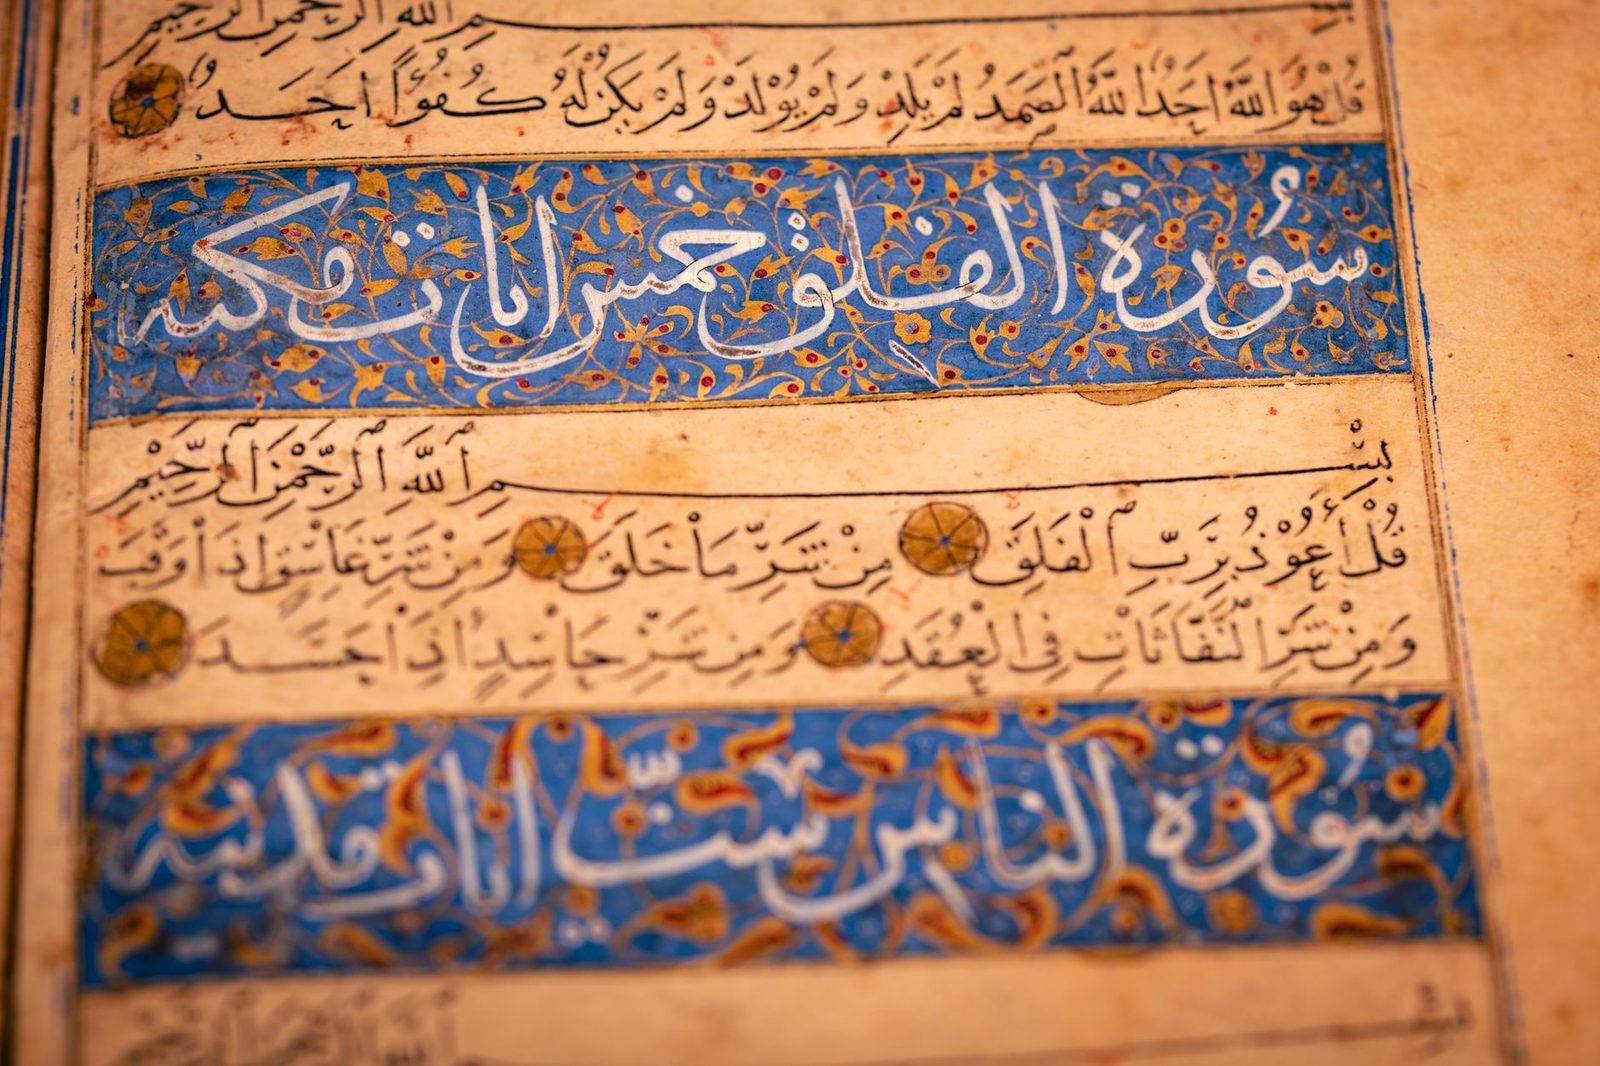 بسم الله الرحمن الرحيم
قُلْ هُوَ اللَّهُ اَحَدٌ اللَّهُ الصَّمَدُ لَمْ يَلِدْ وَلَمْ يُوْلَدْ وَلَمْ يَكُنْ لَهُ كُفُوًا اَحَدٌ
سُورة الفلق خمس ايات مكيه
بِسْمِ اللَّهِ الرَّحْمٰنِ الرَّحِيْمِ
قُلْ أَعُوْذُ بِرَبِّ الْفَلَقِ مِنْ شَرِّ مَا خَلَقَ وَمِنْ شَرِّ غَاسِقٍ اِذَا وَقَبَ
وَمِنْ شَرِّ النَّفَّاثَاتِ فِي الْعُقَدِ وَمِنْ شَرِّ حَاسِدٍ اِذَا حَسَدَ
سُورة الناس ستّ ايات مدنيه